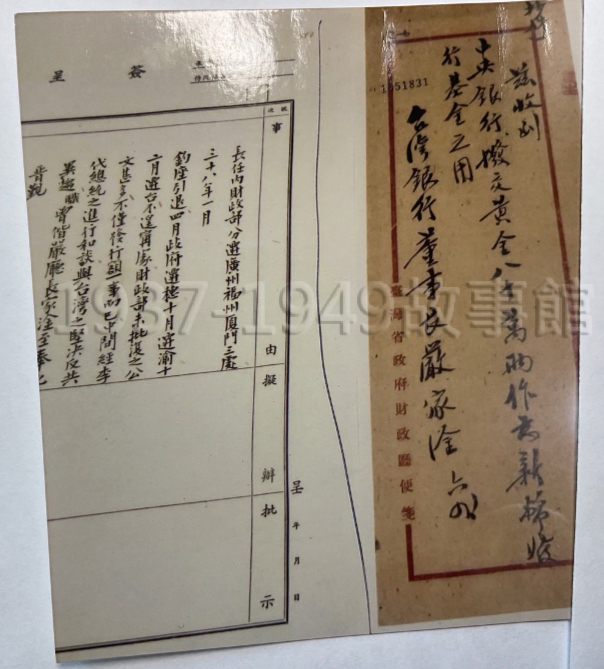 茲收到
中央銀行撥交黃金八十萬兩作為新幣發
行基金之用
台灣銀行董事長嚴家淦
1551831
臺灣省政府財政廳便箋
簽呈
事由
擬辦
批示
呈 年 月 日
長任內財政部分遷廣州福州厦門三處
三十八年一月
鈞座引退四月政府遷穗十月遷渝十
二月遷台不遑寧處財政部未批復之公
文甚多不僅發行額一事而已中間經李
代總統之進行和談與台灣之堅決反共
職曾偕嚴廳長家淦至奉化
晋覲
1937-1949故事館